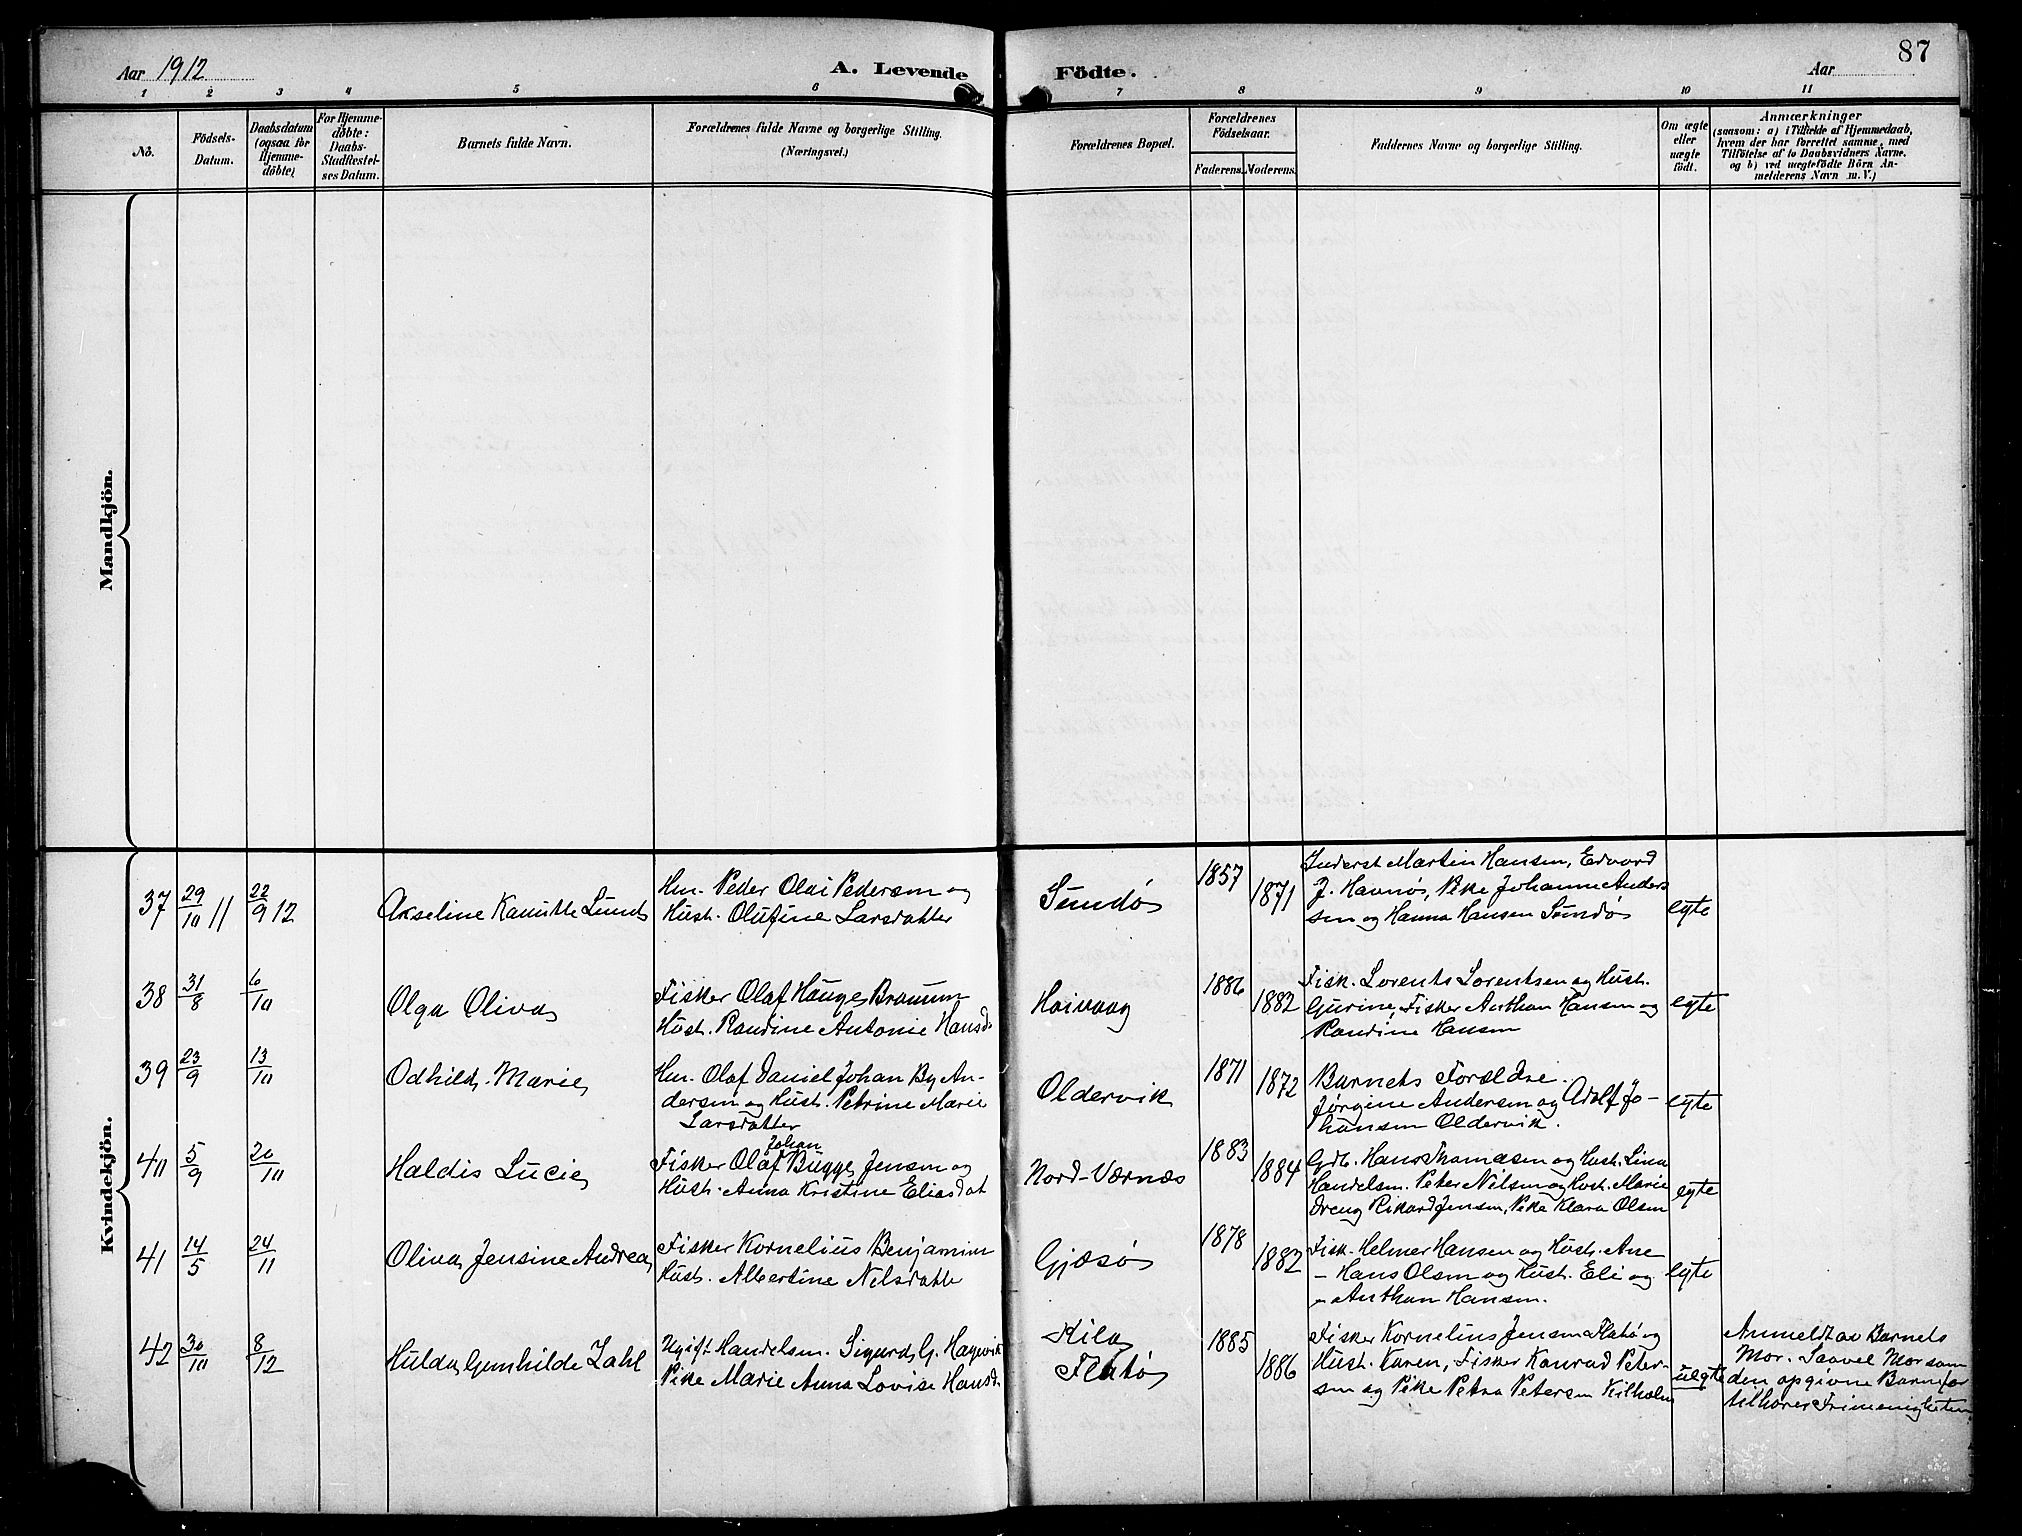 87
Aar 1912
A. Levende
Födte.
Aar
1 2 3 4 5 6 7 8 9 10 11
No.
Födsels-
Datum.
Daabsdatum
(ogsaa for
Hjemme-
døbte)
For Hjemme-
døbte:
Daabs-
Stadfæstel-
ses Datum.
Barnets fulde Navn.
Forældrenes fulde Navne og borgerlige Stilling.
(Næringsvei.)
Forældrenes Bopæl.
Forældrenes
Födselsaar.
Faderens.
Moderens.
Faddernes Navne og borgerlige Stilling.
Om ægte
eller
uægte
födt.
Anmærkninger
(saasom: a) i Tilfælde af Hjemmedaab,
hvem der har forrettet samme, med
Tilföielse af to Daabsvidners Navne,
og b) ved uægtefödte Börn An-
melderens Navn m. V.)
Mandkjön.
Kvindekjön.
37 29/10 11 22/9 12
Akseline Kanutte Lund
Hm. Peder Olai Pedersen og
Hust. Olufine Larsdatter
Sundø
1857
1871
Inderst Martin Hansen, Edvard
J. Havnøs, Pike Johanne Anders
sen og Hanna Hansen Sundø
egte
38 31/8 6/10
Olga Oliva
Fisker Olaf Hauge Braumm
Hust. Randine Antonie Hansd.
Hoivaag
1886
1882
Fisk. Lorents Lorentsen og Hust.
Gurine, Fisker Anthon Hansen og
Randine Hansen
egte
39 23/9 13/10
Odhild Marie
Hm. Olaf Daniel Johan By An-
dersen og Hust. Petrine Marie
Larsdatter
Oldervik
1871
1872
Barnets Forældre.
Jørgine Andersen og Adolf Jo-
hansen Oldervik.
egte
40 5/9 20/10
Haldis Lucie
Johan
Fisker Olaf Bugge Jensen og
Hust. Anna Kristine Eliasdat
Nord-Værnæs
1883
1884
Gdb. Hans Thomasen og Hust. Lina
Handelsm. Peter Nilsen og Hust. Marie
Dreng Rikard Jensen, Pike Klara Olsen
egte
41 14/5 24/11
Oliva Jensine Andrea
Fisker Kornelius Benjamin
Hust. Albertine Nilsdatte
Gjæsø
1878
1882
Fisk. Helmer Hansen og Hust. Ane
- Hans Olsen og Hust. Eli og
- Anthon Hansen.
egte
42 30/10 8/12
Hulda Gunhilde Zahl
Ugift Handelsm. Sigurd G. Hagevik
Pike Marie Anna Lovise Hansd.
Kila
Flatø
1885
1886
Fisker Kornelius Jensen Flatø og
Hust. Karen, Fisker Konrad Peter-
sen og Pike Petra Petersen Kilholm
uegte
Anmeldt av Barnets
Mor. Saavel Mor som
den opgivne Barnefar
tilhører Frimenigheten